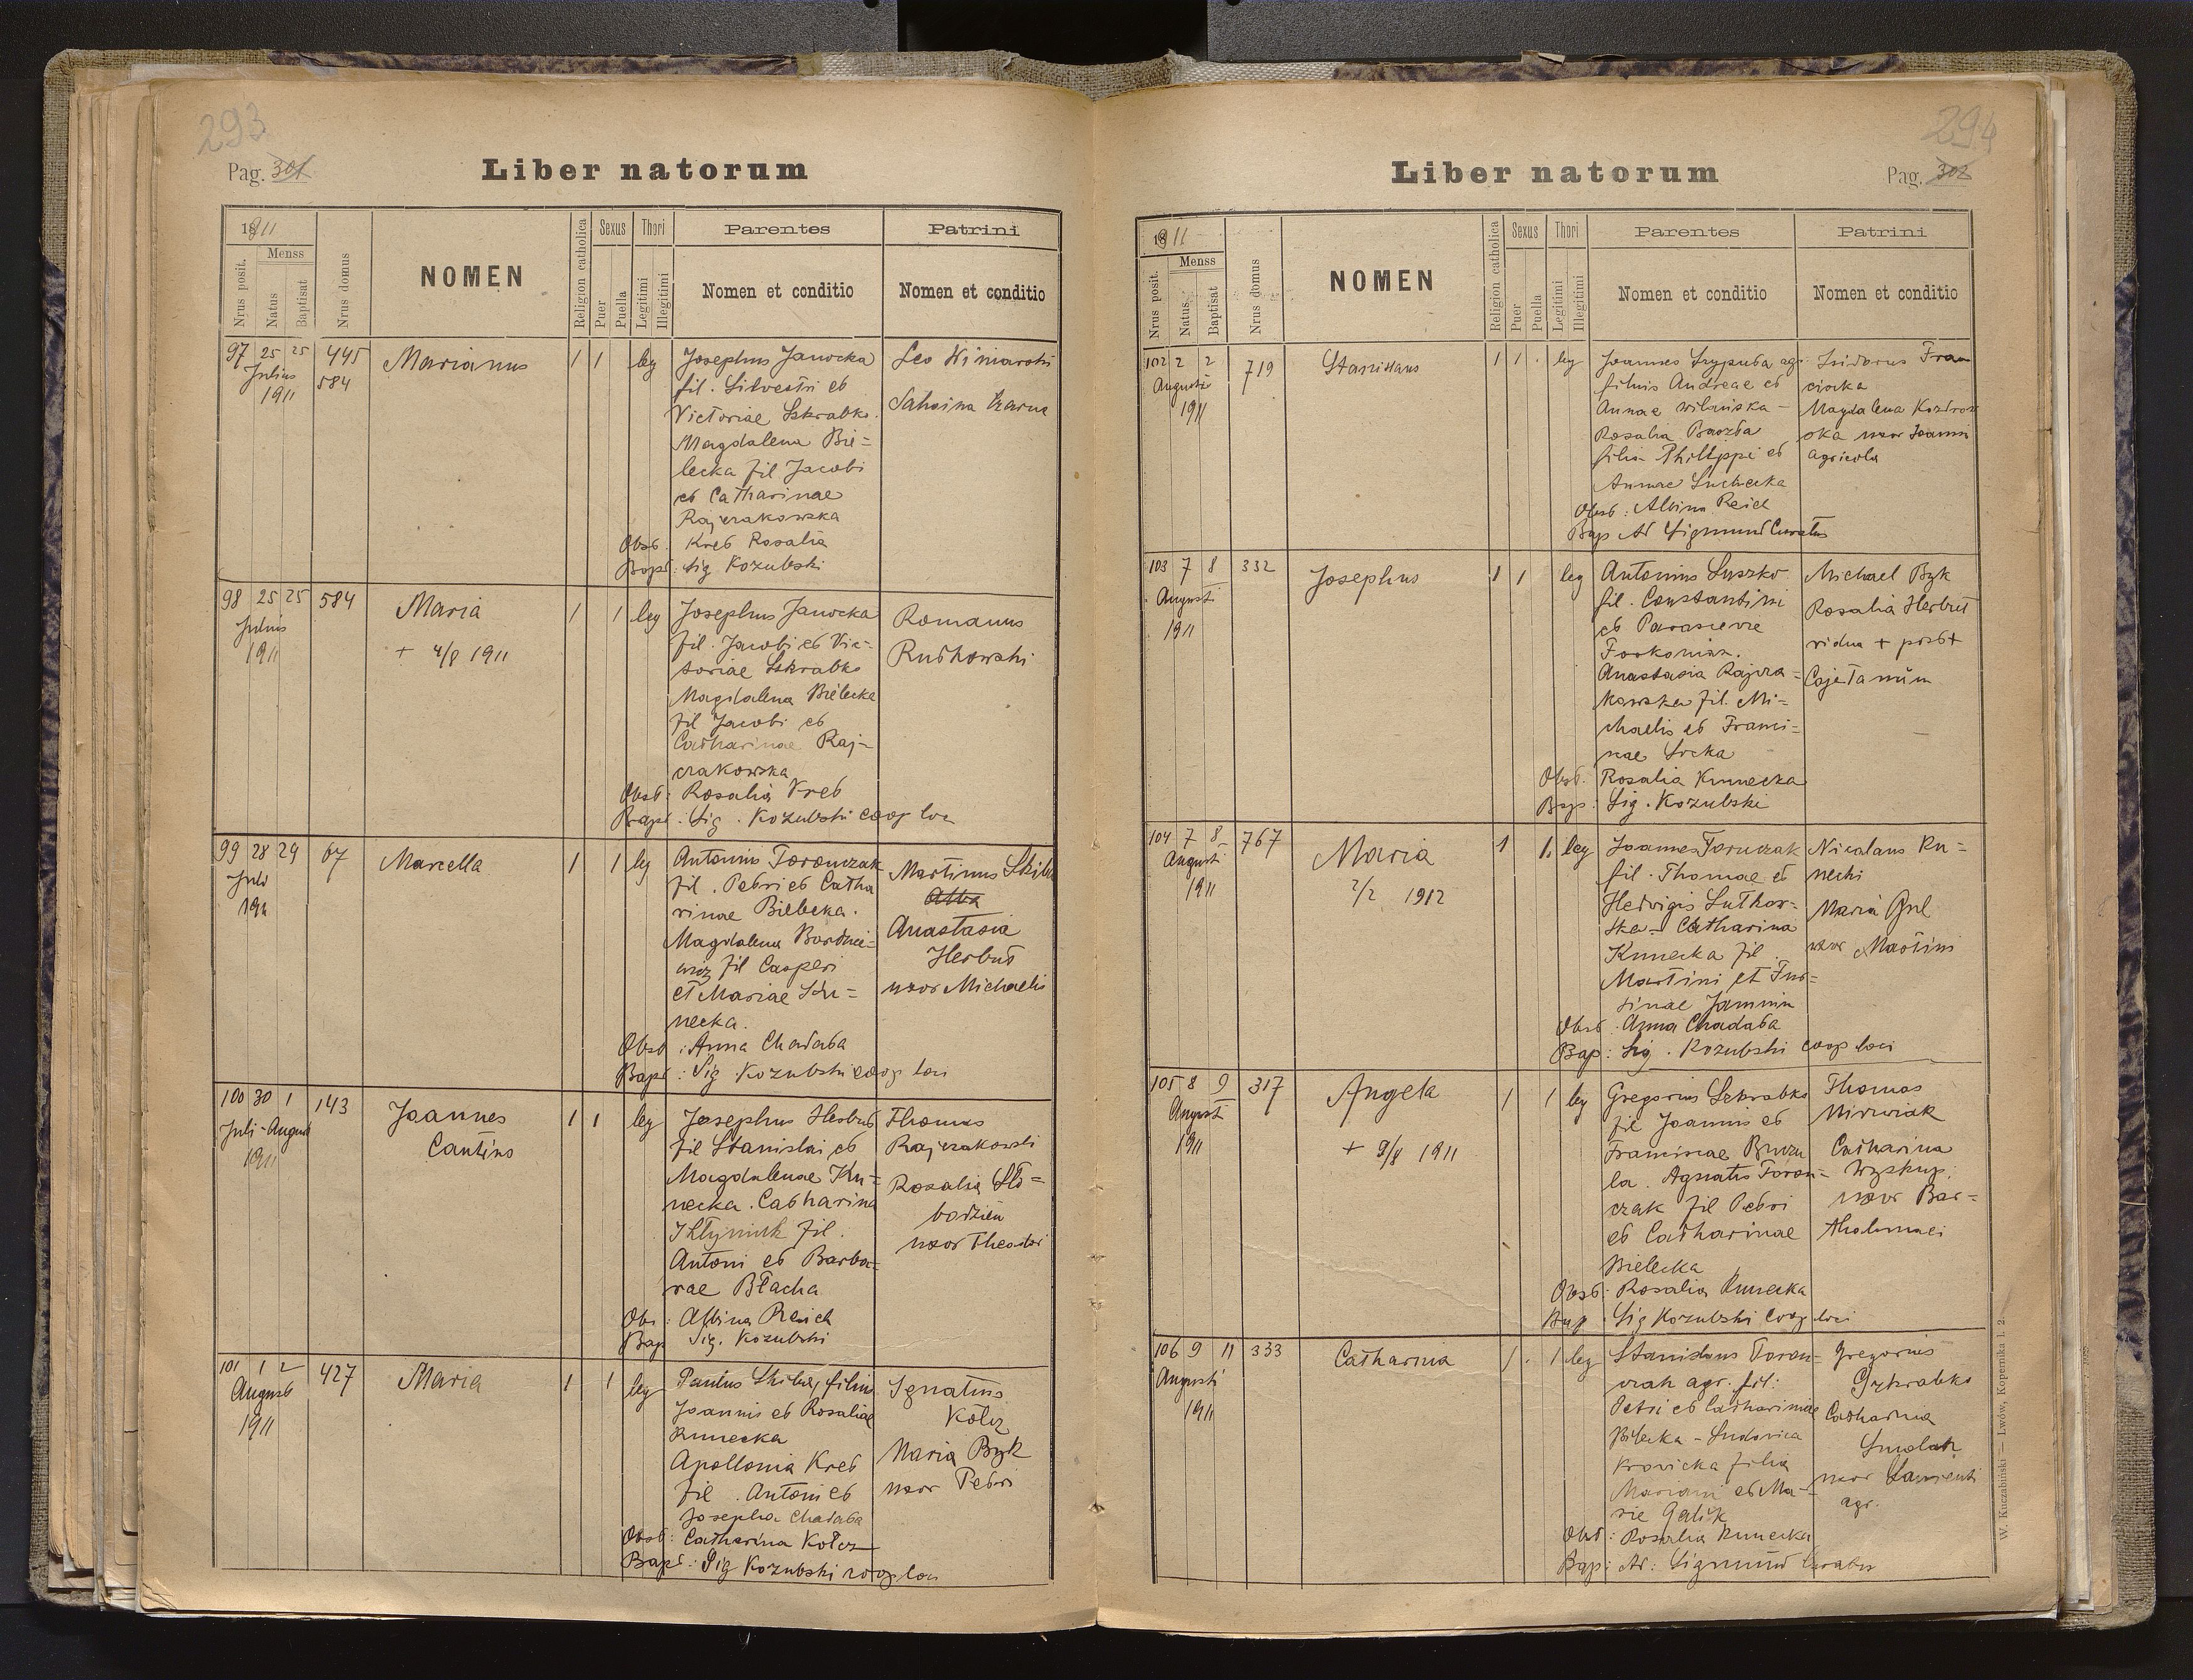 293
Pag. 301
Liber natorum
1911
Menss
Nrus posit.
Natus
Baptisat
Nrus domus
NOMEN
Religion catholica
Sexus
Puer
Puella
Thori
Legitimi
Illegitimi
Parentes
Nomen et conditio
Patrini
Nomen et conditio
97 25 25 445 Marianus 1 1 leg Josephus Janocka Leo Winiarski
Julius 584 fil. Silvestri et
1911 Victoriae Szkrabko. Sabaina Czarna
Magdalena Bie=
lecka fil Jacobi
et Catharinae
Rajczakowska
Obst. Kret Rosalia
Bapt: Sig Kozubski
98 25 25 584 Maria 1 1 leg Josephus Janocka Romanus
Julius fil. Jacobi et Vic=
1911 + 4/8 1911 toriae Szkrabko Rutkowski
Magdalena Bielecka
fil Jacobi et
Catharinae Raj=
czakowska
Obst: Rosalia Kret
Bapt: Sig. Kozubski coop loci
99 28 29 67 Marcella 1 1 leg Antonius Toronczak Martinus Skiba
Juli fil. Petri et Catha
1911 rinae Bielecka. Anastasia
Magdalena Bordnie= Herbut
wicz fil Casperi
et Mariae Ku= uxor Michaelis
necka.
Obst: Anna Chadaba
Bapt: Sig. Kozubski coop loci
100 30 1 143 Joannes 1 1 leg Josephus Herbut Thomas
Juli - August Cantius fil Stanislai et Rajczakowski
1911 Magdalenae Ku=
necka. Catharina Rosalia Sło=
fil. bodzien
Antoni et Barba= uxor Theodori
rae Błacha
Obs: Albina Reich
Bap Sig. Kozubski
101 1 2 427 Maria 1 1 leg Paulus Skiba, filius Ignatius
August Joannis et Rosaliae Kotcz
1911 Kunecka
Apollonia Kret Maria Byk
fil. Antoni et uxor Petri
Josepha Chadaba
Obst: Catharina Kotcz
Bapt: Sig Kozubski coop loci
294
Liber natorum
Pag. 302
1911
Menss
Nrus posit.
Natus
Baptisat
Nrus domus
NOMEN
Religion catholica
Sexus
Puer
Puella
Thori
Legitimi
Illegitimi
Parentes
Nomen et conditio
Patrini
Nomen et conditio
102 2 2 719 Stanislaus 1 1 leg Joannes Szypuła agr. Isidorus Fran
Augusti filius Andreae et ciszka
1911 Annae Wilańska - Magdalena Kozdrow
Rosalia Barzba ska uxor Joannis
filia Philippi et agricola
Annae Suchecka
Obst: Albina Reich
Bap Ad Sigmund Curatus
103 7 8 332 Josephus 1 1 leg Antonius Suszko Michael Byk
Augusti fil. Constantini Rosalia Herbut
1911 et Parascevae vidua + post +
Anastasia Rajcza= Cajetanum
kowska fil. Mi=
chaelis et Franci=
nae Socka
Obst. Rosalia Kunecka
Bap: Sig. Kozubski
104 7 8 767 Maria 1 1 leg Joannes Toruczak Nicolaus Ku=
Augusti fil. Thomae et necki
1911 2/2 1912 Hedvigis Sutkow=
ska - Catharina Maria Gul
Kunecka fil. uxor Martini
Martini et Jus=
tinae Jamnin
Obst: Anna Chadaba
Bap: Sig. Kozubski coop loci
105 8 9 317 Angela 1 1 leg Gregorius Szkrabko Thomas
Augusti fil Joannis et Mirwiak
1911 + 9/8 1911 Franciscae Buczu Catharina
la. Agnatis Toron= Wyskup:
czak fil Petri uxor Bar=
et Catharinae tholomaei
Bielecka
Obst: Rosalia Kunecka
Bap: Sig Kozubski Coop loci
106 9 11 333 Catharina 1 1 leg Stanislaus Toron= Gregorius
Augusti czak agr. fil: Szkrabko
1911 Petri et Catharinae Catharina
Bilecka - Ludovica Smolak
Krovicka filia uxor Laurenti
Mariani et Ma= agr.
rie Galik
Obst: Rosalia Kunecka
Bap: Ad: Sigmund Curatus
W. Kuczabiński — Lwów, Kopernika l. 2.